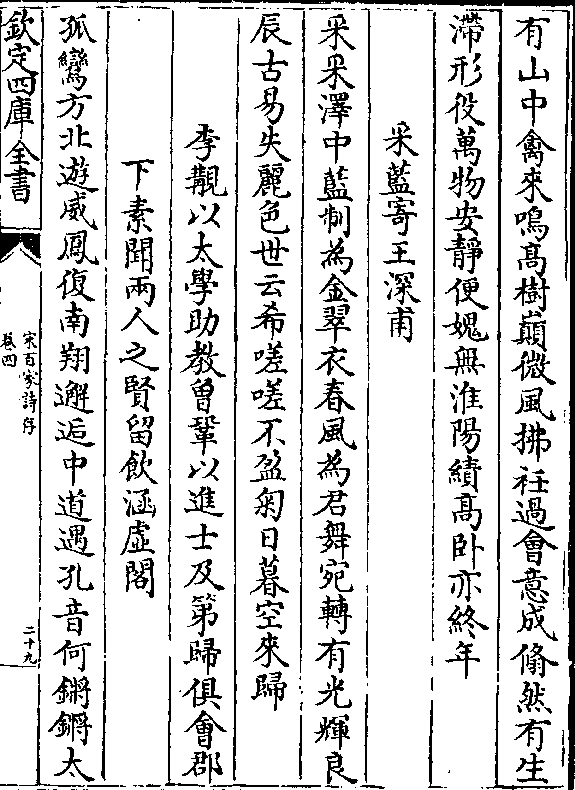 有山中禽來鳴髙樹巔微風拂衽過會意成翛然有生
滯形役萬物安靜便媿無淮陽績髙卧亦終年
采藍寄王深甫
采采澤中藍制為金翠衣春風為君舞宛轉有光輝良
辰古易失麗色世云希嗟嗟不盈匊日暮空來歸
李覯以太學助教曾鞏以進士及第歸俱會郡
下素聞兩人之賢留飲涵虛閣
孤鸞方北遊威鳳復南翔邂逅中道遇孔音何鏘鏘太
欽定四庫全書
宋百家詩存
卷四
二十九